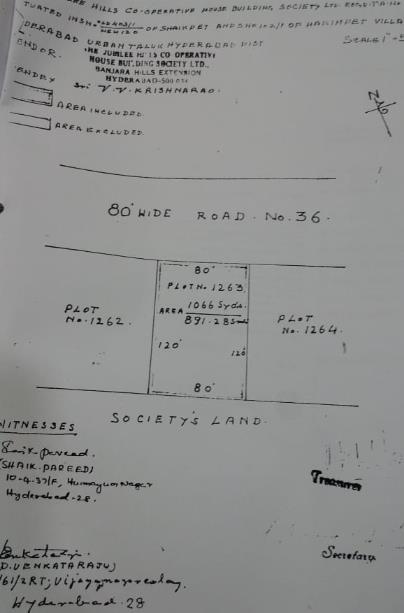 HILLS CO-OPERATIVE HOUSE BUILDING, SOCIETY LTD.
OF SHAIKPET AND SHNO. 2/1 OF HAKIMPET VILLA
DERABAD URBAN TALUK HYDERABAD DIST
SCALE 1"
ENDOR.
THE JUBILEE HILLS CO OPERATIVE
HOUSE BUILDING SOCIETY LTD.,
BANJARA HILLS EXTENSION
HYDERABAD-500
ENDEY
Sri V. V. KRISHNARAO.
AREA INCLUDED.
AREA EXCLUDED.
80' WIDE ROAD. No. 36.
80'
PLOT No. 1263.
AREA 1066 Syds.
891.28
PLOT
No. 1262.
PLOT
No. 1264.
120'
120'
80'
SOCIETY'S LAND.
WITNESSES
(SHAIK. PAREED)
10-4-37/F, Humayun Nagar
Hyderabad-28.
Treasurer
Secretary
(D. VENKATARAJU)
Hyderabad. 28